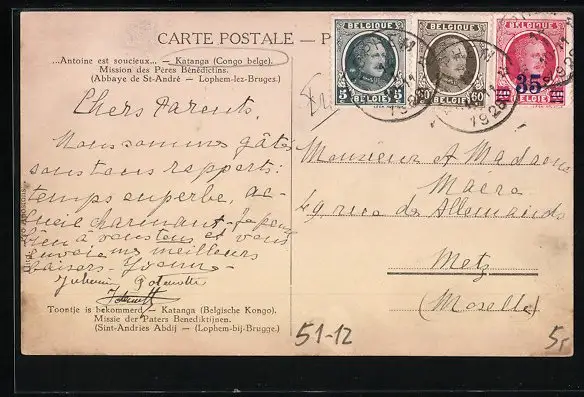 CARTE POSTALE — P
...Antoine est soucieux... — Katanga (Congo belge).
Mission des Pères Bénédictins.
(Abbaye de St-André — Lophem-lez-Bruges.)
BELGIQUE
5 5
BELGIE
BELGIQUE
60 60
BELGIE
BELGIQUE
35
BELGIE
1926
1926
Chers Parents.
Nous sommes gâtés
sous tous rapports:
temps superbe, ac-
cueil charmant. Je pense
bien à vous tous et vous
envoie mes meilleurs
baisers - Yvonne -
Monsieur et Madame
49 rue des Allemands
Metz
(Moselle)
Toontje is bekommerd. — Katanga (Belgische Kongo).
Missie der Paters Benediktijnen.
(Sint-Andries Abdij — (Lophem-bij-Brugge.)
51-12